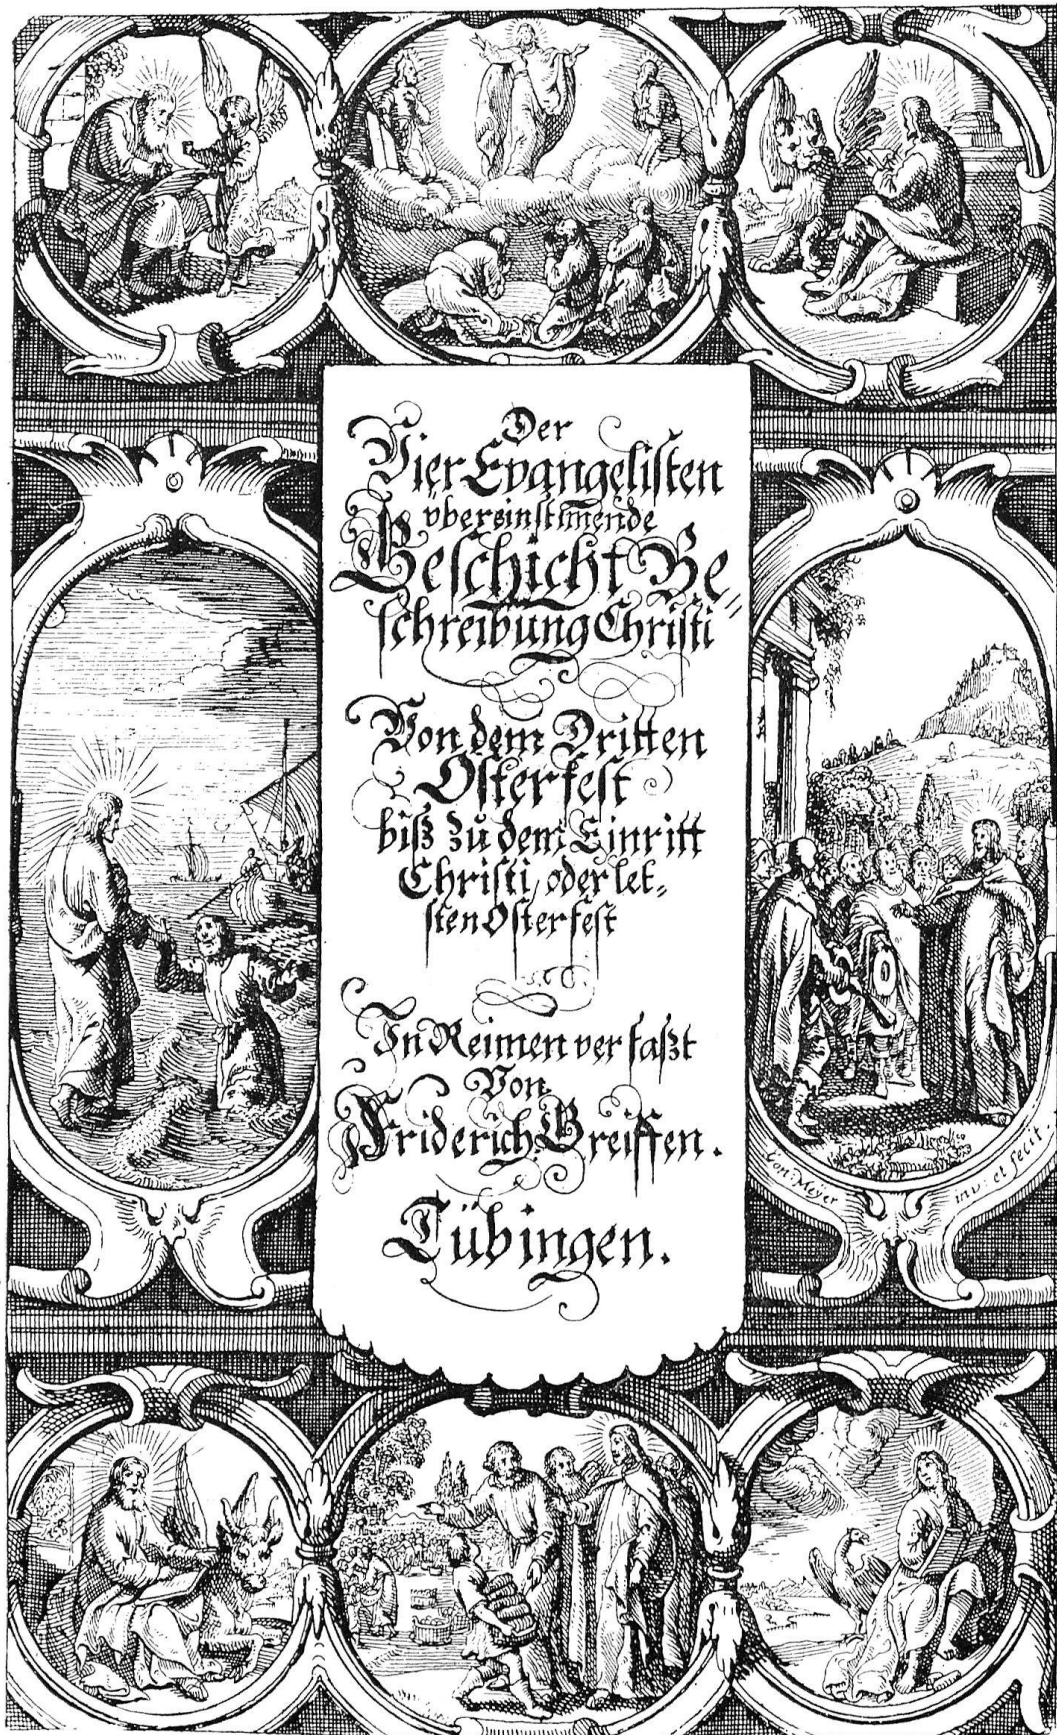 Der
Vier Evangelisten
vbereinstim̄ende
Geschicht Be⸗
schreibung Christi
Von dem Dritten
Osterfest
biß zu dem Einritt
Christi, oder let⸗
sten Osterfest
In Reimen verfaßt
Von
Friderich Greiffen.
Tübingen.
Con: Meyer inv: et fecit.